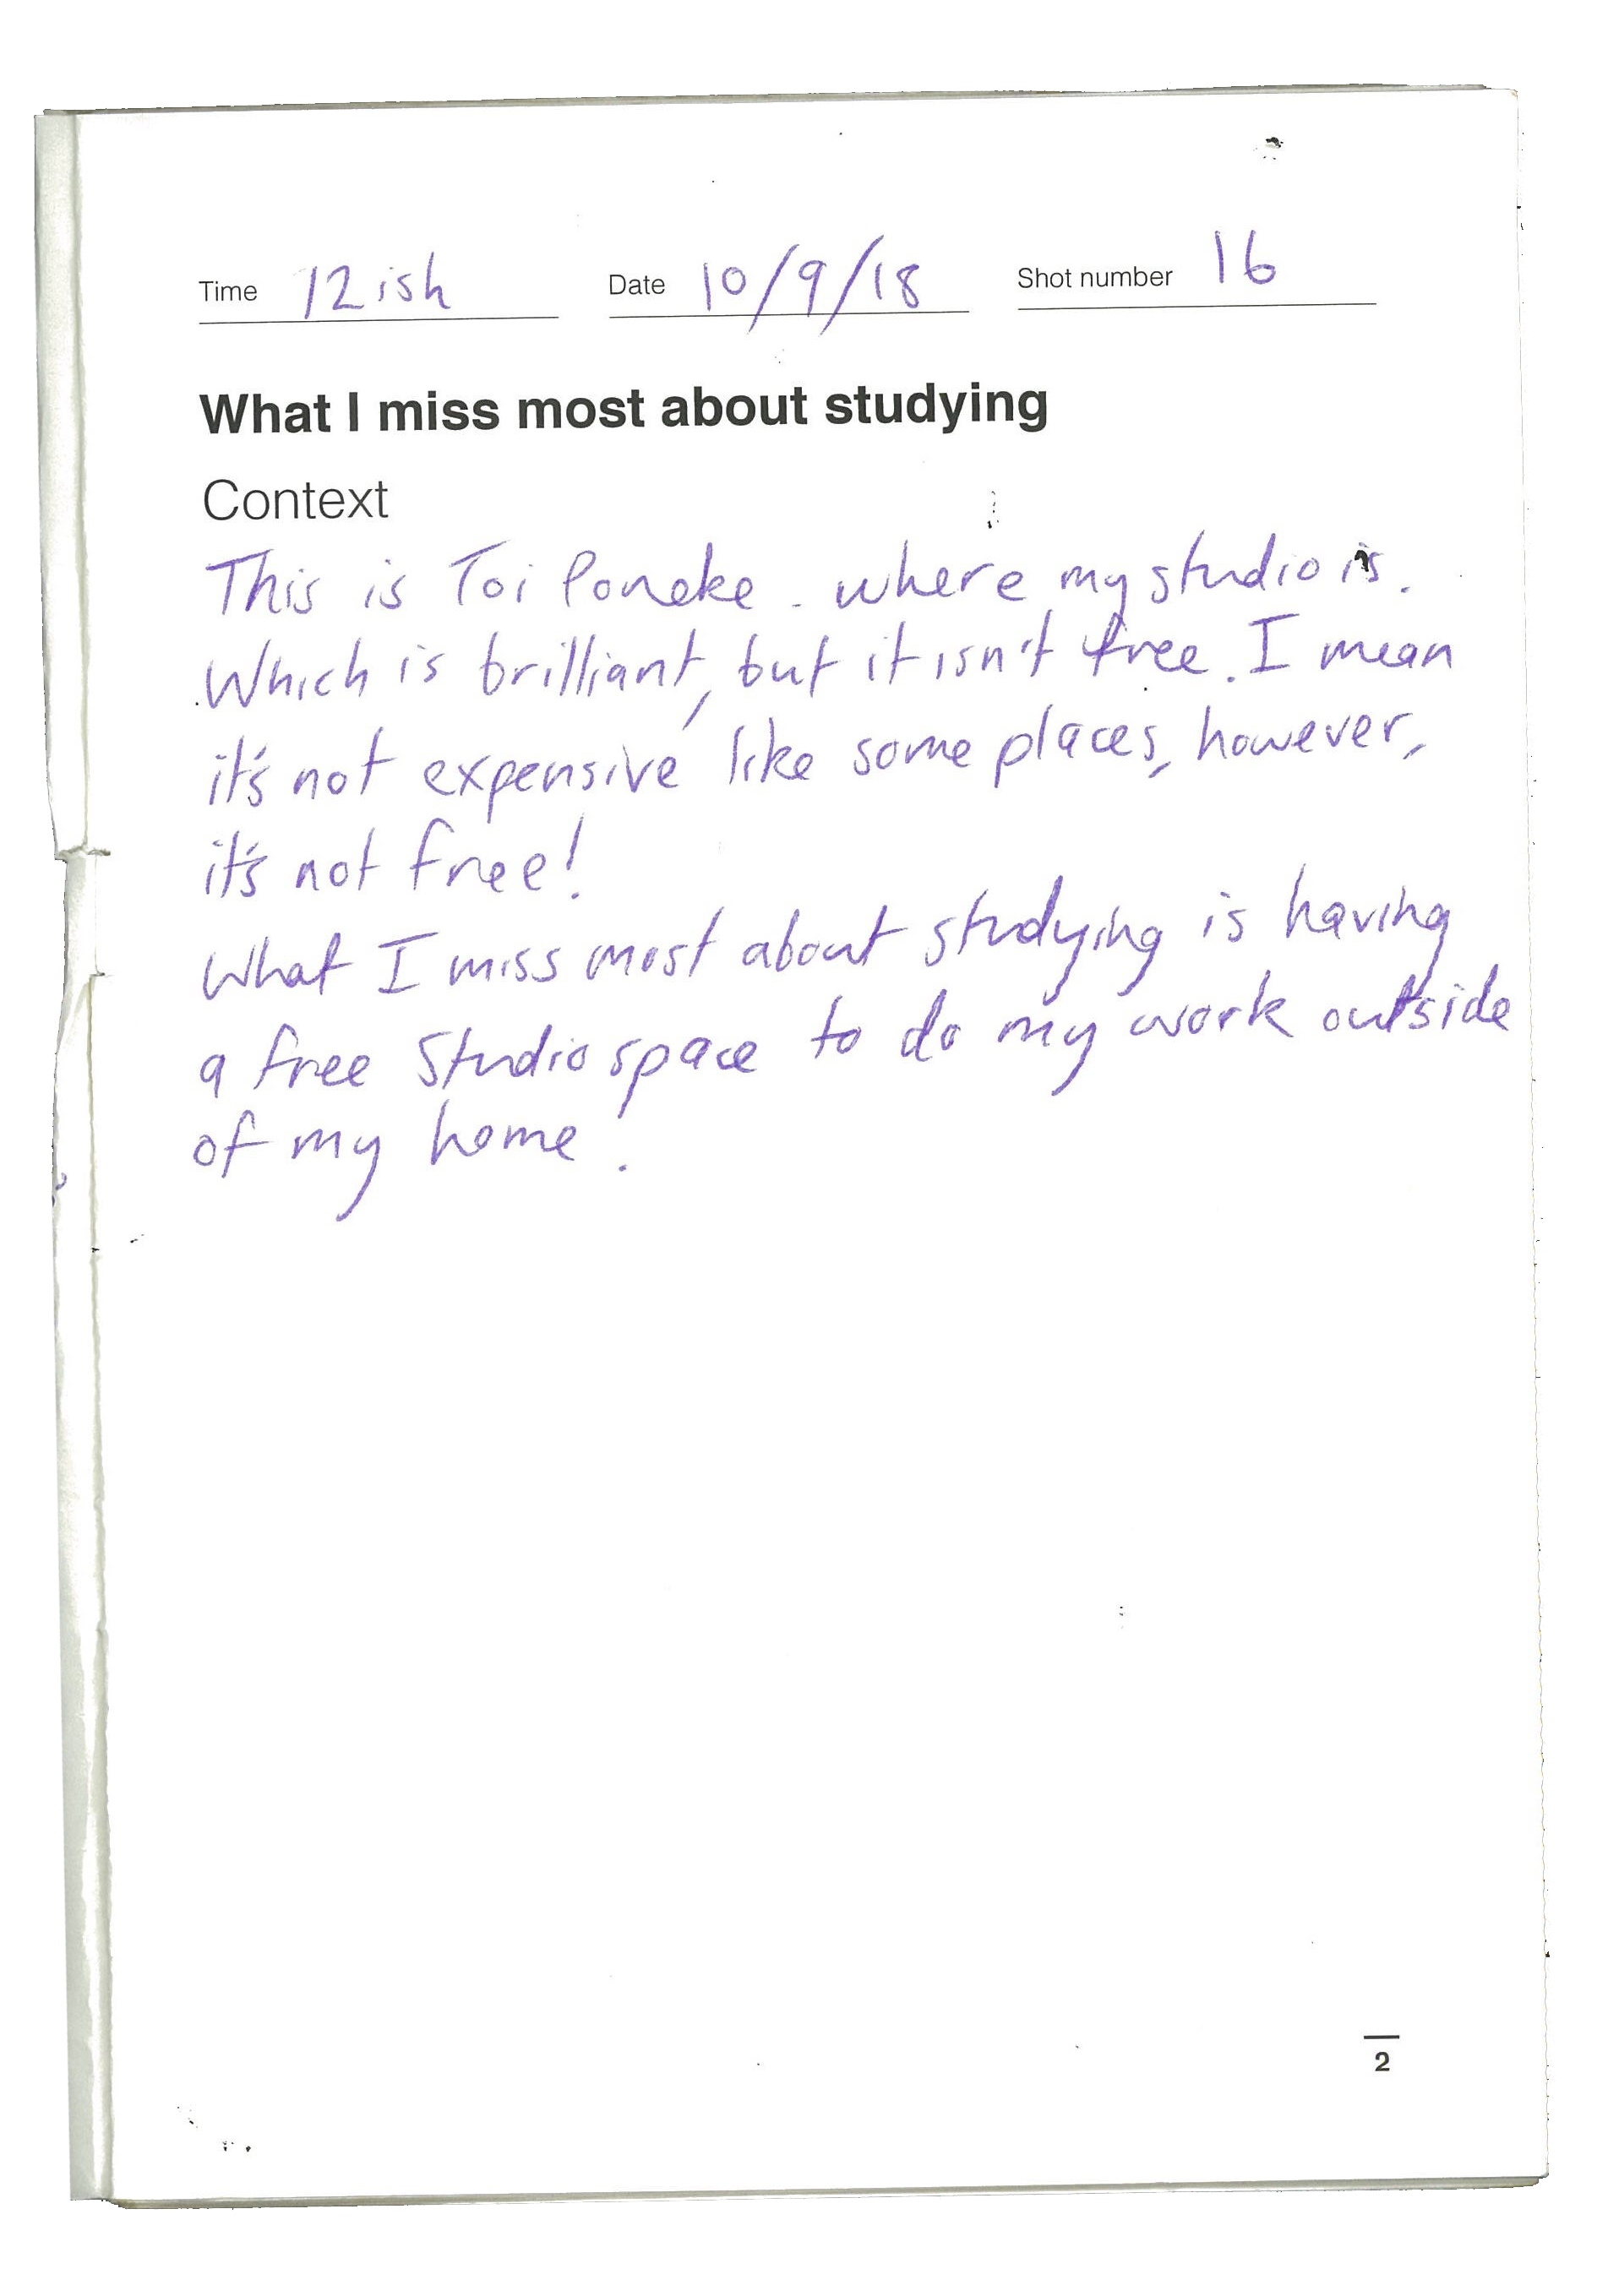 Time 12ish Date 10/9/18 Shot number 16
What I miss most about studying
Context
This is Toi Poneke - where my studio is.
Which is brilliant, but it isn't free. I mean
it's not expensive like some places, however,
it's not free!
What I miss most about studying is having
a free studio space to do my work outside
of my home!
2